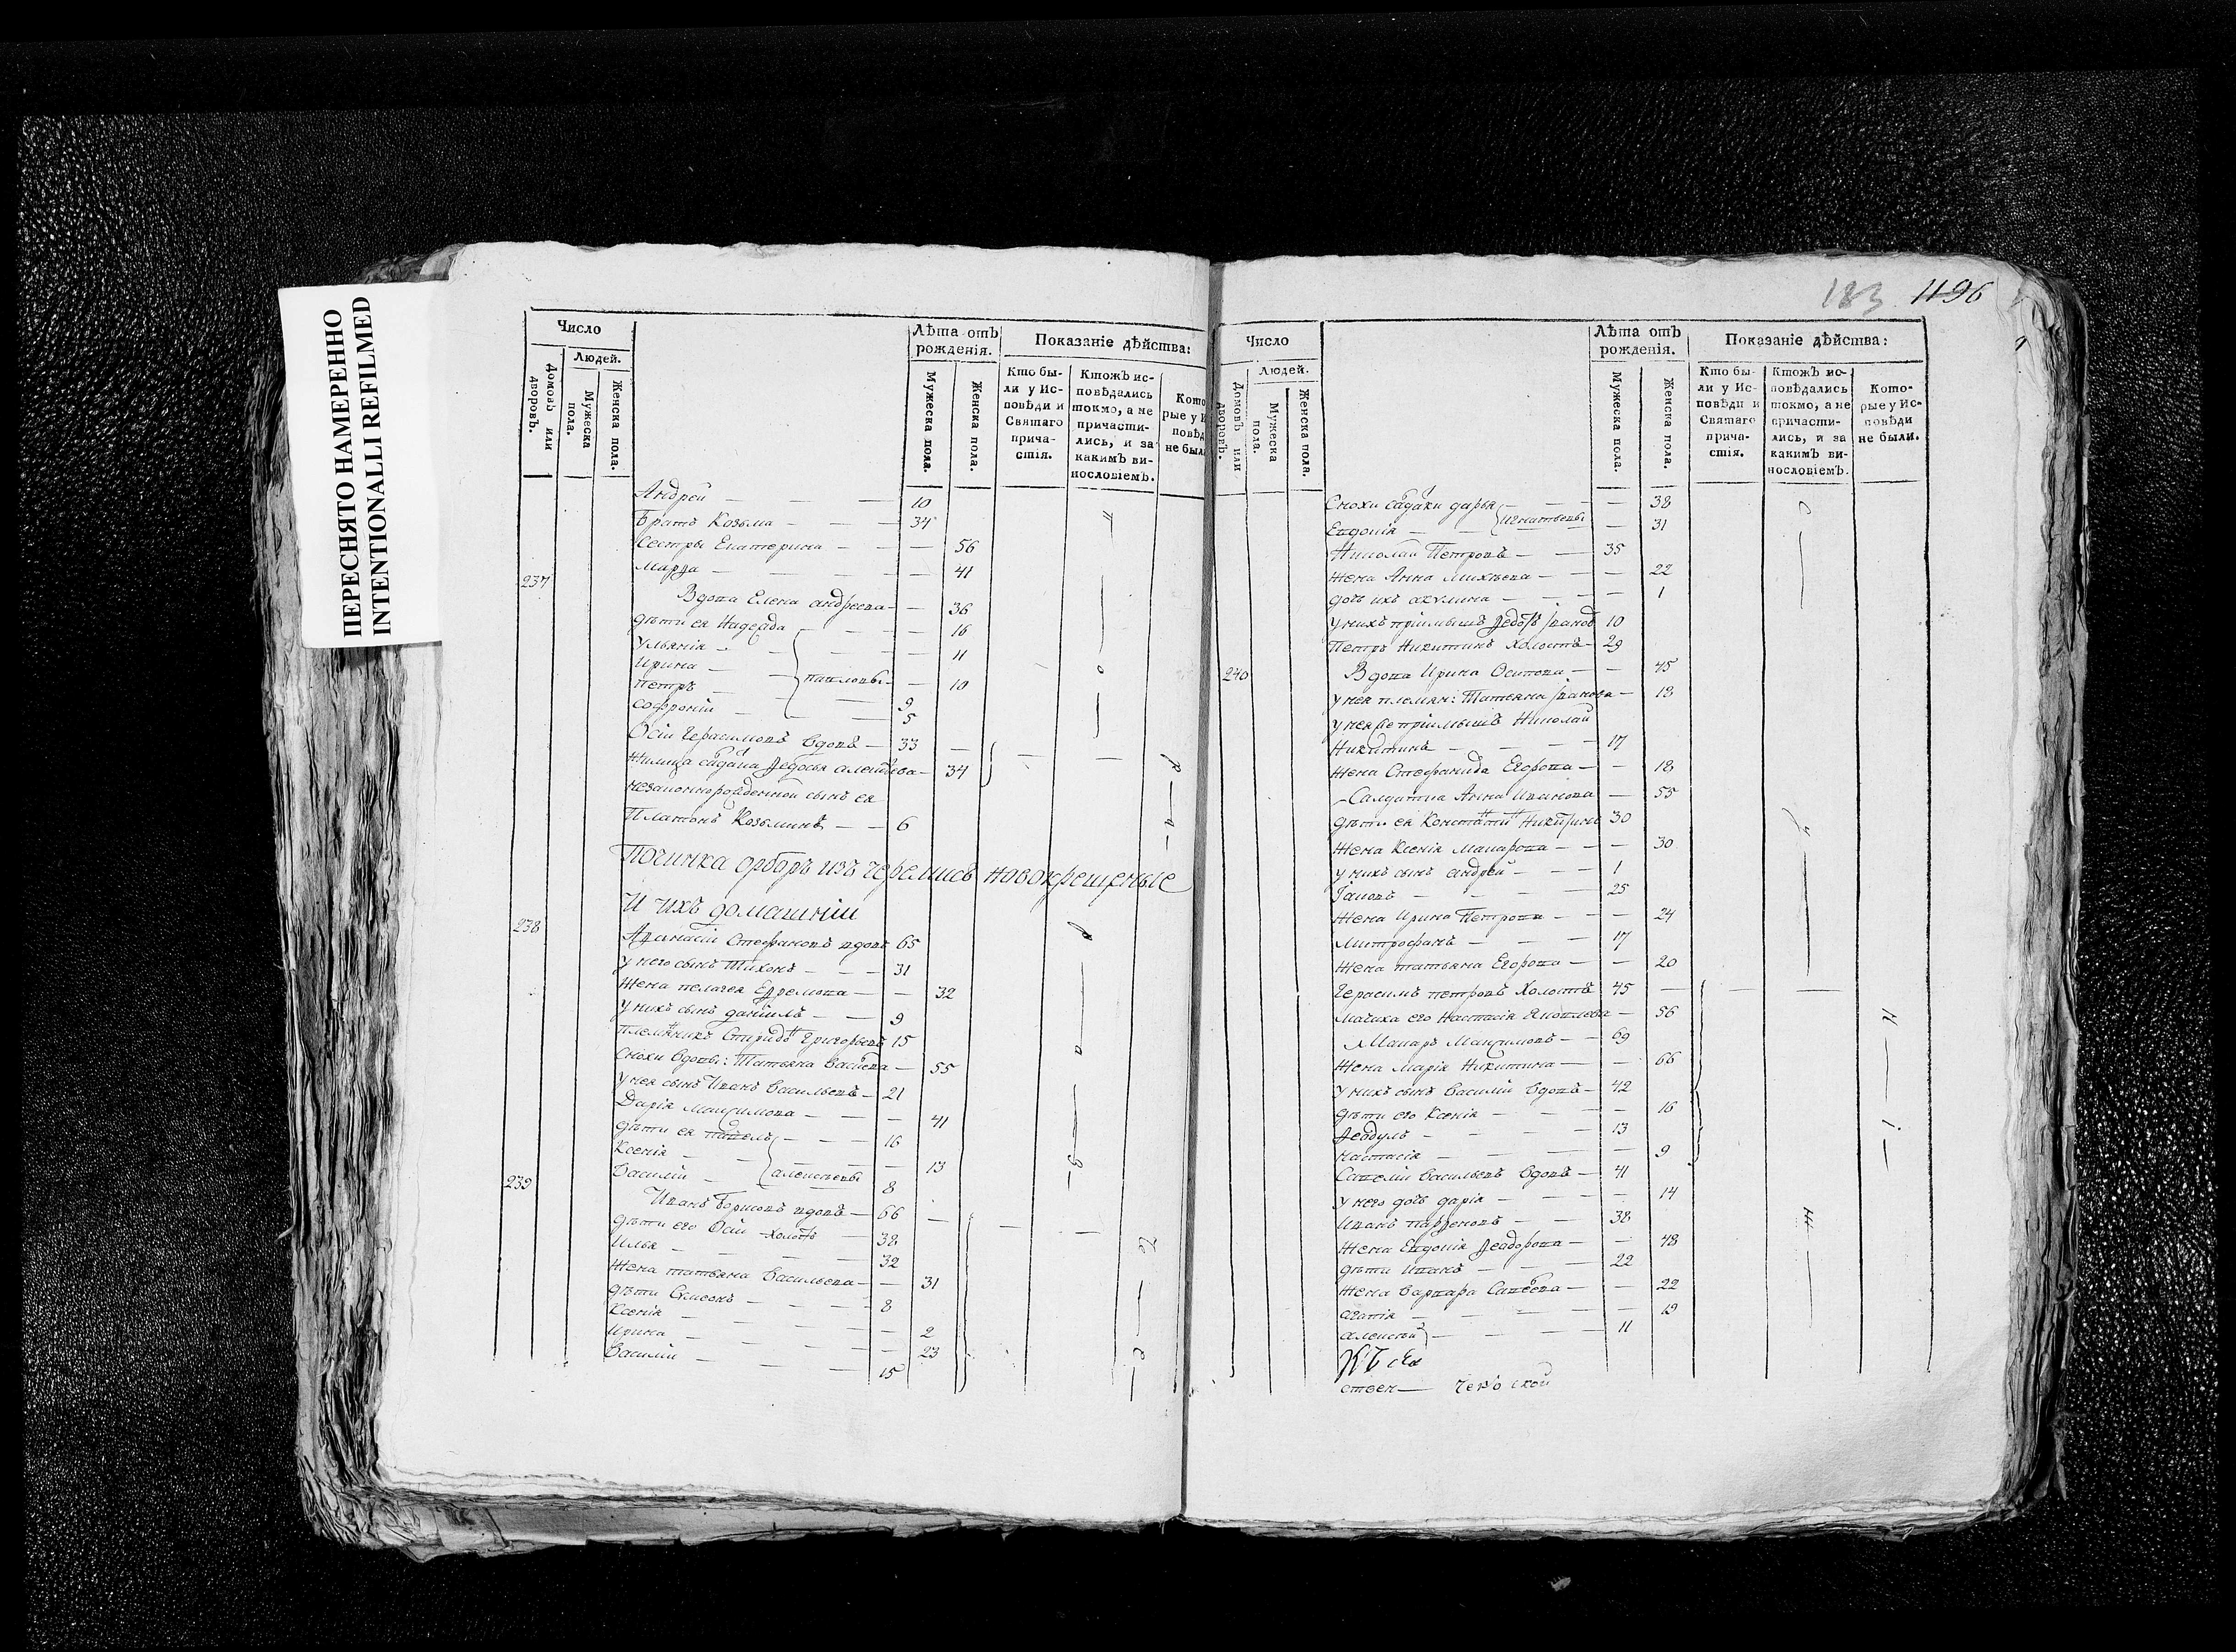 ПЕРЕСНЯТО НАМЕРЕННО
INTENTIONALLI REFILMED
183 1196
Число
Людей.
Домовъ или дворовъ.
Мужеска пола.
Женска пола.
Лѣта отъ рожденія.
Мужеска пола.
Женска пола.
Показаніе дѣйства:
Кто были у Исповѣди и Святаго причастія.
Ктожъ исповѣдались токмо, а не причастились, и за какимъ винословіемъ.
Кото
рые у И
повѣд
не был
Андрей — — — 10
Братъ Козьма — — — 34
Сестры Екатерина — — — 56
Марѳа — — — 41
237 Вдова Елена андреева — — 36
дѣти ея — — 16
Ульянія — — — 11
Ирина — — — 10
Петръ — павловы — 9
софроній — — 5
Осіи Герасимовъ вдовъ — 33
Ѳедосья — 34
незаконнорожденной сынъ ея
Платонъ Козьминъ — — 6
Починка орборъ изъ черемисъ новокрещеные
И ихъ домашніи
238 Аѳанасіи Стефановъ вдовъ 65
у него сынъ Тихонъ — — — 31
жена пелагея Ефремова — — 32
у нихъ сынъ даніилъ — — 9
Григорьевъ 15
Снохи вдовы: Татьяна — 55
у нея сынъ Иванъ Васильевъ — 21
Дарія Максимова — — — 41
дѣти ея павелъ — — — 16
Ксенія — — — 13
Василіи — алексѣевы 8
239 Иванъ Борисовъ вдовъ — 66
дѣти его Осіи холостъ — 38
Илья — — — 32
жена татьяна васильева — — 31
дѣти Симеонъ — — — 8
Ксенія — — — — 2
Ирина — — — — 23
Василіи — — — 15
Число
Людей.
Домовъ или дворовъ.
Мужеска пола.
Женска пола.
Лѣта отъ рожденія.
Мужеска пола.
Женска пола.
Показаніе дѣйства:
Кто были у Исповѣди и Святаго причастія.
Ктожъ исповѣдались токмо, а не причастились, и за какимъ винословіемъ.
Которые у Исповѣди не были.
Снохи дарья — — 38
Евдокія — — игнатьевы — 31
Николаи Петровъ — — 35
жена Анна Михѣева — — 22
дочь ихъ акулина — — — 1
у нихъ пріимышъ 10
Петръ Никитинъ холостъ — 29
240 Вдова Ирина Осипова — — 45
у нея племян: Татьяна — 18
пріимышъ Николай
Никитинъ — — — 17
жена Стефанида Егорова — — 18
Салдатка Анна Иванова — 55
дѣти ея 30
жена Ксенія Макарова — — 30
у нихъ сынъ андрей — — 1
Іаковъ — — — 25
жена Ирина Петрова — — 24
Митрофанъ — — — 17
жена татьяна Егорова — — 20
Герасимъ петровъ холостъ 45 —
Мачиха его Настасія — 56
Макаръ Максимовъ — — 69
жена Марія Никитина — — 66
у нихъ сынъ Василіи вдовъ — 42
дѣти его Ксенія — — — 16
Ѳеодулъ — — — 13
настасія — — — 9
Савелій Васильевъ вдовъ — 41
у него дочь дарія — — — 14
Иванъ парфеновъ — — 38
жена Евдокія Ѳеодорова — — 48
дѣти Иванъ — — — 22
жена Варвара — — 22
агапія — — — 19
алексѣй — — — 11